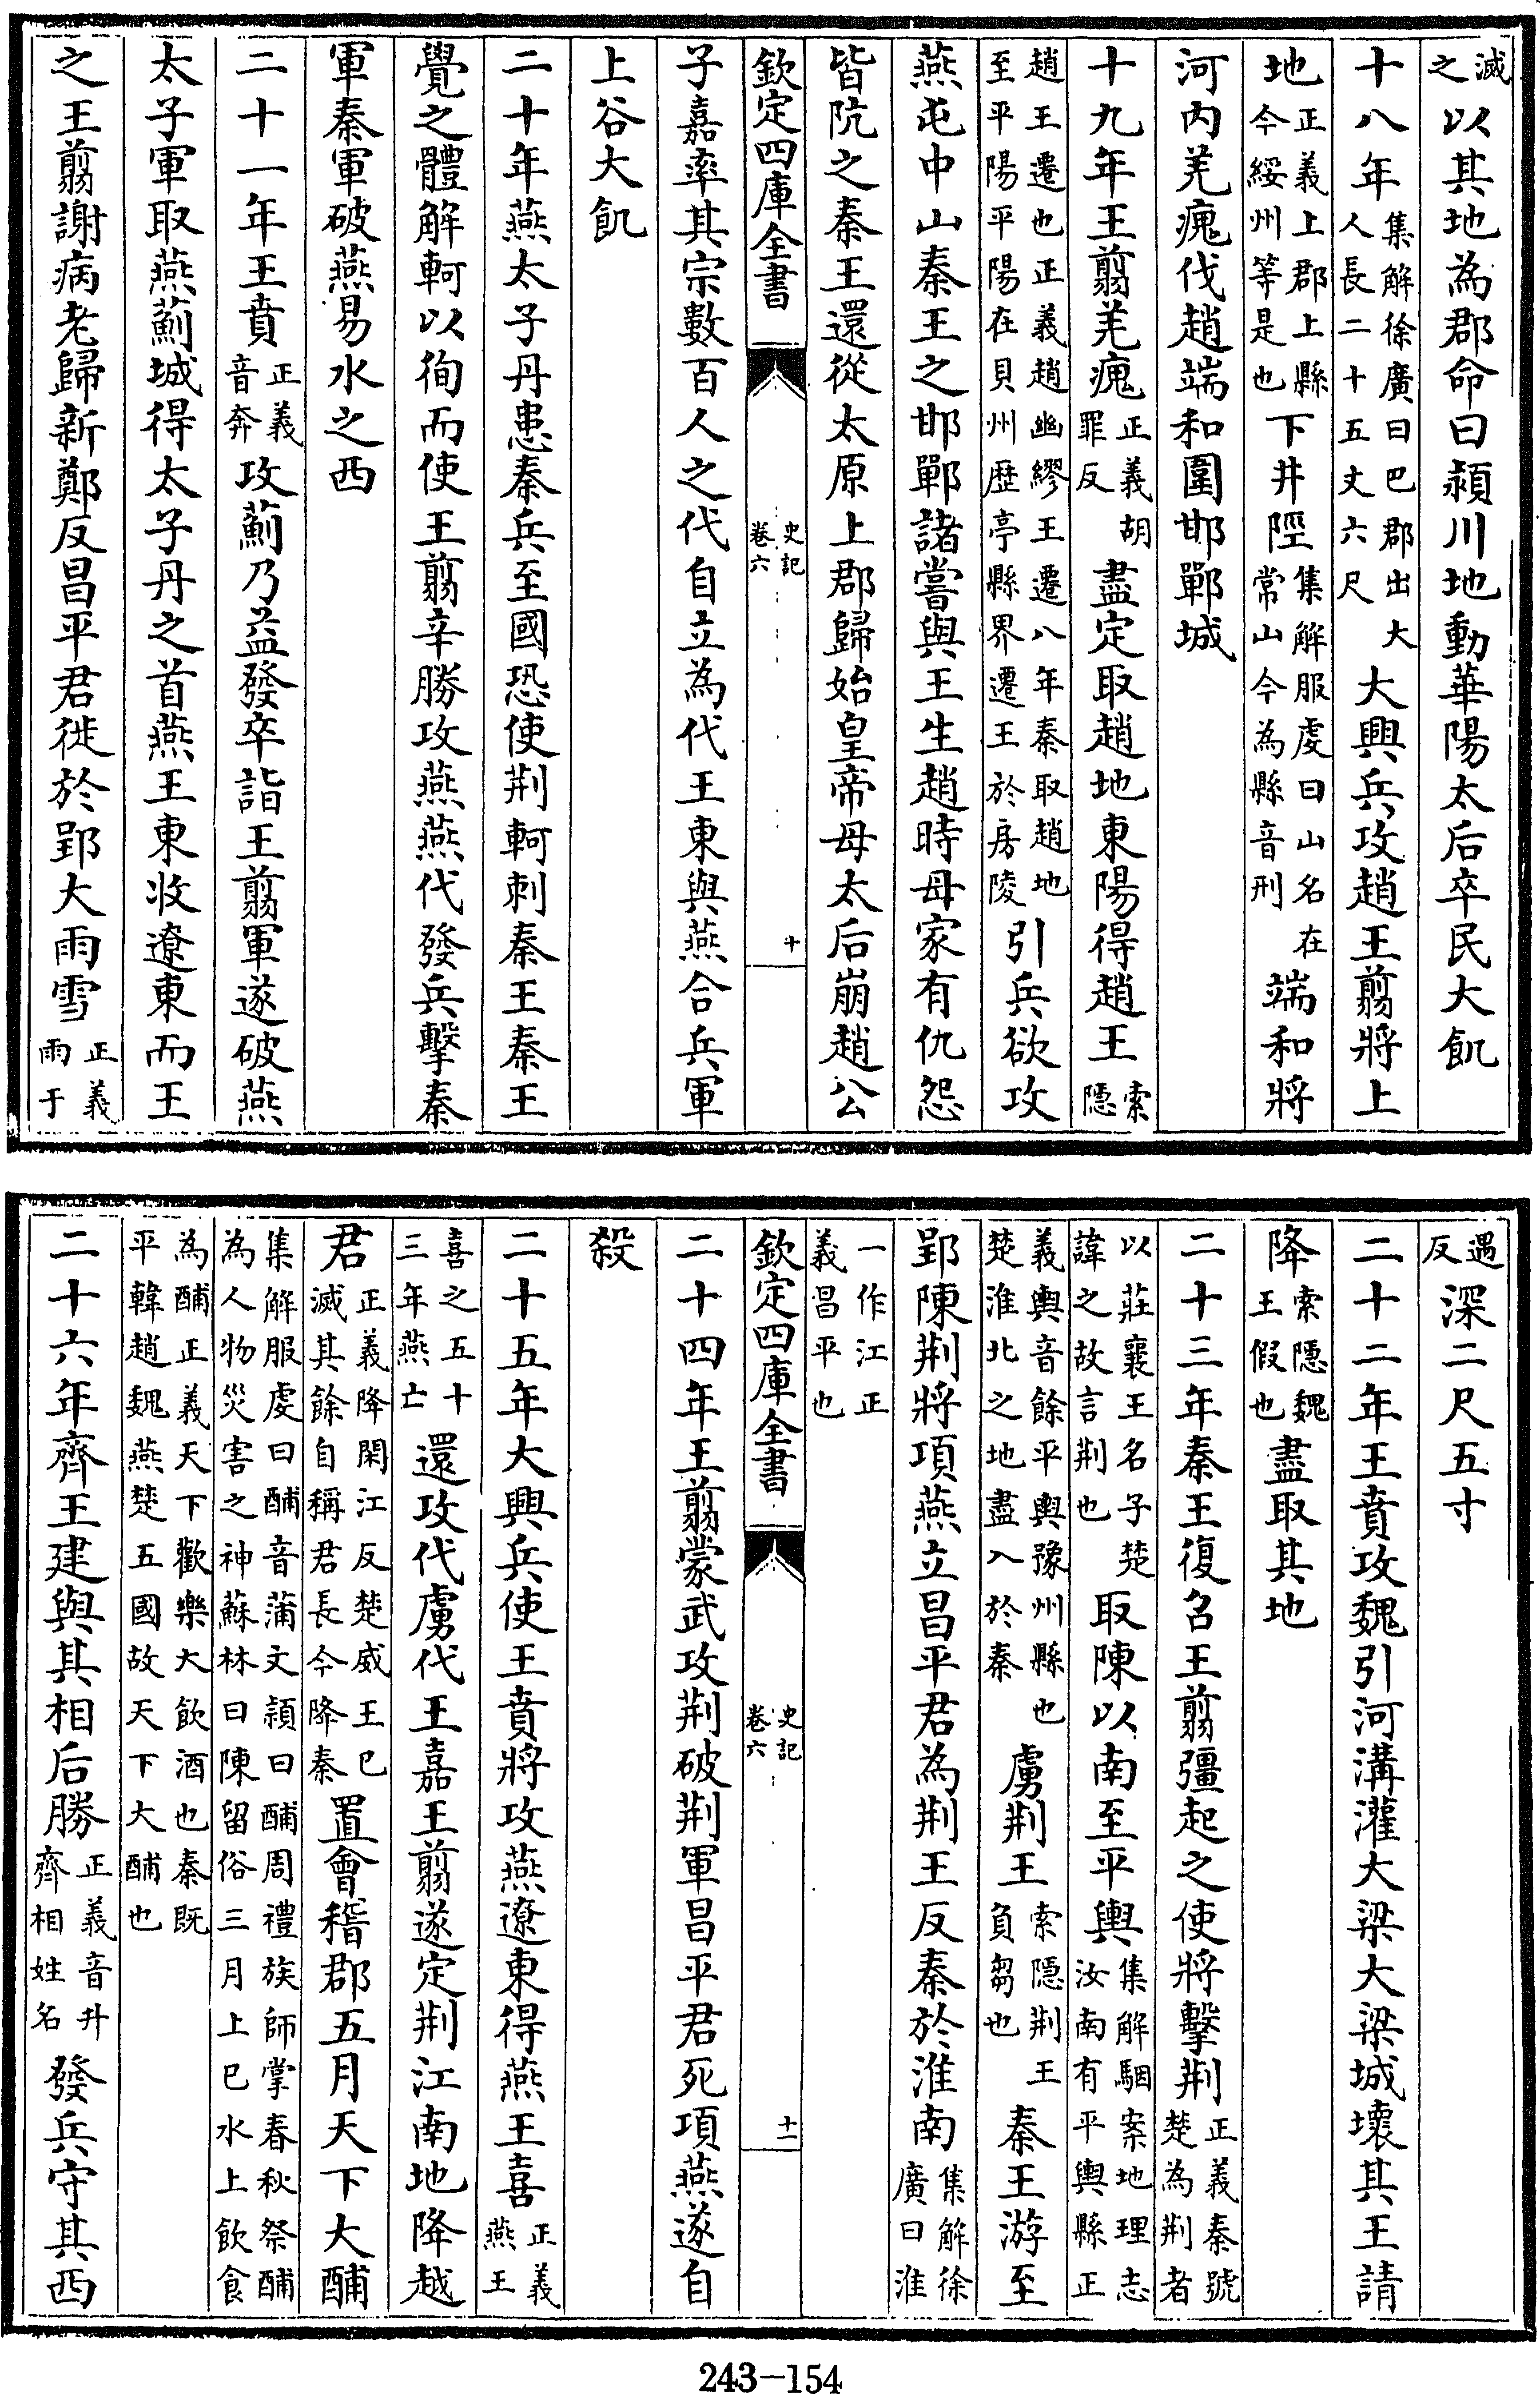 滅之以其地為郡命曰潁川地動華陽太后卒民大飢
十八年集解徐廣曰巴郡出大人長二十五丈六尺大興兵攻趙王翦將上
地正義上郡上縣今綏州等是也下井陘集解服虔曰山名在常山今為縣音刑端和將
河內羌瘣伐趙端和圍邯鄲城
十九年王翦羌瘣正義胡罪反盡定取趙地東陽得趙王索隱
趙王遷也正義趙幽繆王遷八年秦取趙地至平陽平陽在貝州歴亭縣界遷王於房陵引兵欲攻
燕屯中山秦王之邯鄲諸嘗與王生趙時母家有仇怨
皆阬之秦王還從太原上郡歸始皇帝母太后崩趙公
欽定四庫全書 史記卷六 十
子嘉率其宗數百人之代自立為代王東與燕合兵軍
上谷大飢
二十年燕太子丹患秦兵至國恐使荆軻刺秦王秦王
覺之體解軻以徇而使王翦辛勝攻燕燕代發兵擊秦
軍秦軍破燕易水之西
二十一年王賁正義音奔攻薊乃益發卒詣王翦軍遂破燕
太子軍取燕薊城得太子丹之首燕王東收遼東而王
之王翦謝病老歸新鄭反昌平君徙於郢大雨雪正義雨于
遇反深二尺五寸
二十二年王賁攻魏引河溝灌大梁大梁城壞其王請
降索隱魏王假也盡取其地
二十三年秦王復召王翦彊起之使將擊荆正義秦號楚為荆者
以莊襄王名子楚諱之故言荆也取陳以南至平輿集解駰案地理志汝南有平輿縣正
義輿音餘平輿豫州縣也楚淮北之地盡入於秦虜荆王索隱荆王負芻也秦王游至
郢陳荆將項燕立昌平君為荆王反秦於淮南集解徐廣曰淮
一作江正義昌平也
欽定四庫全書 史記卷六 十一
二十四年王翦蒙武攻荆破荆軍昌平君死項燕遂自
殺
二十五年大興兵使王賁將攻燕遼東得燕王喜正義燕王
喜之五十三年燕亡還攻代虜代王嘉王翦遂定荆江南地降越
君正義降閑江反楚威王已滅其餘自稱君長今降秦置會稽郡五月天下大酺
集解服虔曰酺音蒲文潁曰酺周禮族師掌春秋祭酺為人物災害之神蘇林曰陳留俗三月上巳水上飲食
為酺正義天下歡樂大飲酒也秦既平韓趙魏燕楚五國故天下大酺也
二十六年齊王建與其相后勝正義音升齊相姓名發兵守其西
243-154